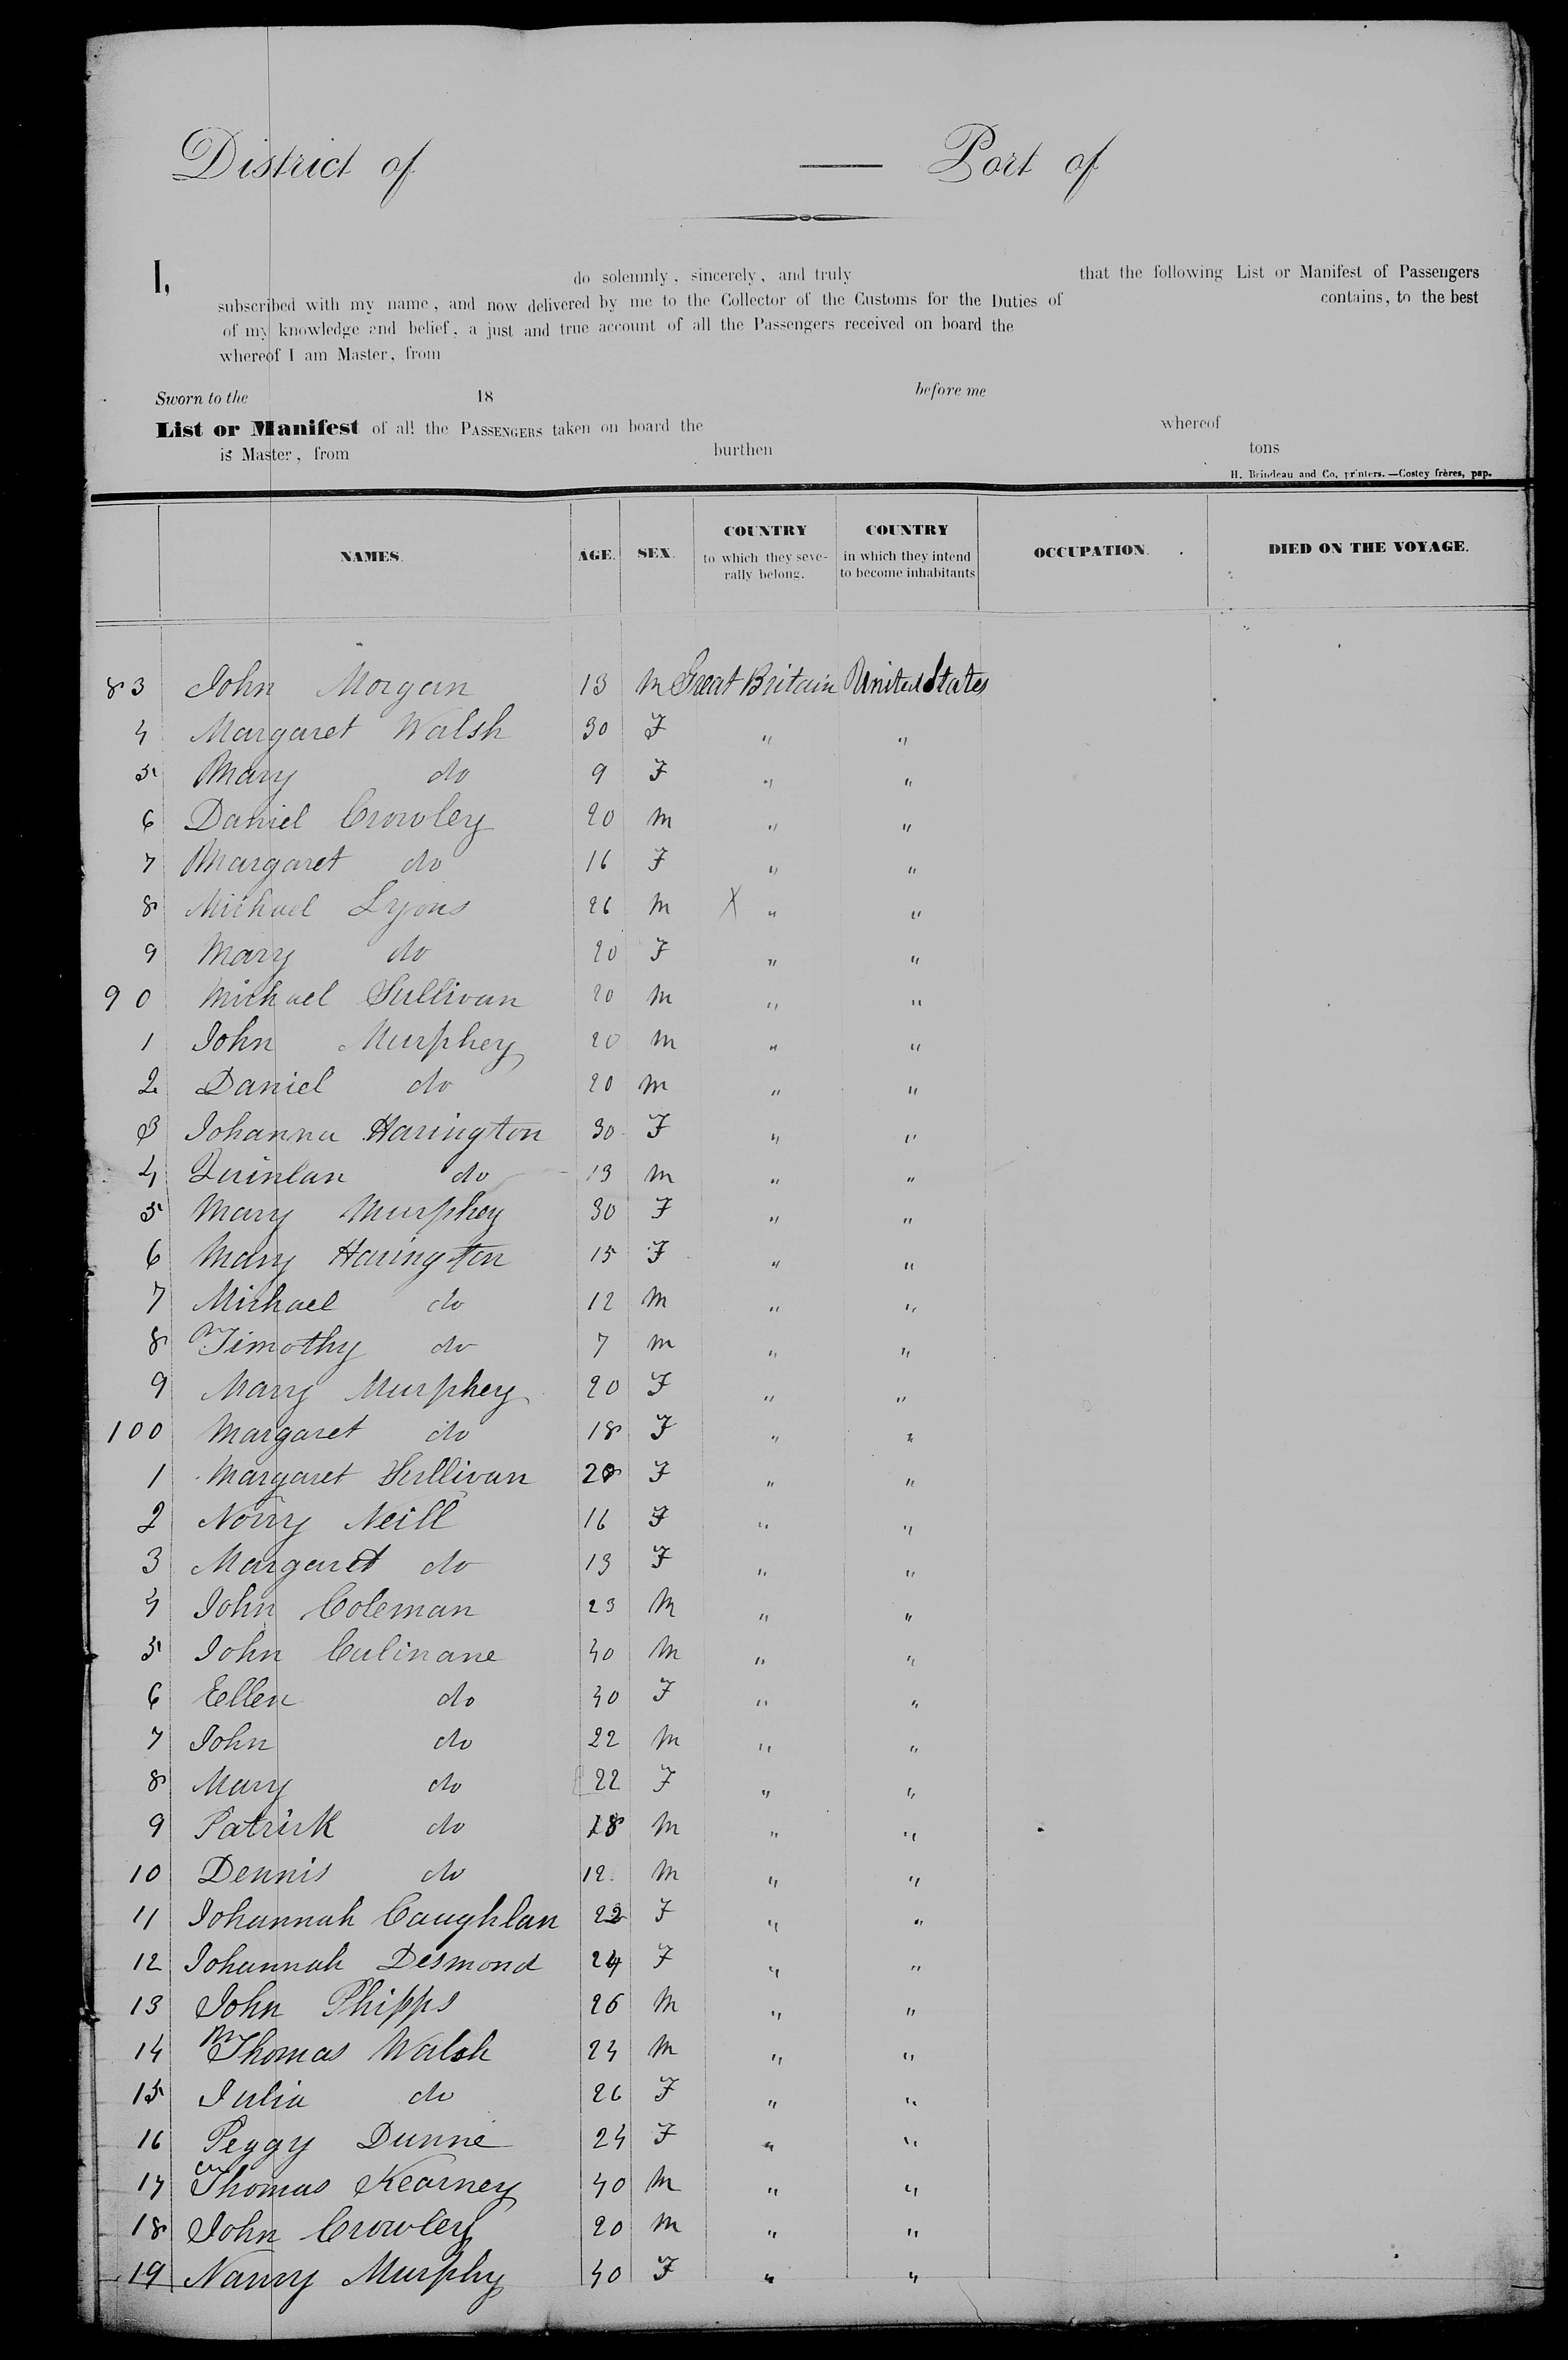 District of — Port of
I, do solemnly, sincerely, and truly that the following List or Manifest of Passengers
subscribed with my name, and now delivered by me to the Collector of the Customs for the Duties of contains, to the best
of my knowledge and belief, a just and true account of all the Passengers received on board the
whereof I am Master, from
Sworn to the 18 before me
List or Manifest of all the PASSENGERS taken on board the whereof
is Master, from burthen tons
H. Brindeau and Co, printers.—Costey frères, pap.
NAMES. AGE. SEX. COUNTRY to which they severally belong. COUNTRY in which they intend to become inhabitants OCCUPATION. DIED ON THE VOYAGE.
83 John Morgan 13 M Great Britain United States
4 Margaret Walsh 30 F " "
5 Mary do 9 F " "
6 Daniel Crowley 20 M " "
7 Margaret do 16 F " "
8 Michael Lyons 26 M X " "
9 Mary do 20 F " "
90 Michael Sullivan 20 M " "
1 John Murphey 20 M " "
2 Daniel do 20 M " "
3 Johanna Harington 30 F " "
4 Quinlan do 13 M " "
5 Mary Murphey 30 F " "
6 Mary Harington 15 F " "
7 Michael do 12 M " "
8 Timothy do 7 M " "
9 Mary Murphey 20 F " "
100 Margaret do 18 F " "
1 Margaret Sullivan F " "
2 Norry Neill 16 F " "
3 Margaret do 13 F " "
4 John Coleman 23 M " "
5 John Culinane 40 M " "
6 Eellen do 40 F " "
7 John do 22 M " "
8 Mary do 22 F " "
9 Patrick do 18 M " "
10 Dennis do 12 M " "
11 Johannah Caughlan 22 F " "
12 Johannah Desmond 24 F " "
13 John Phipps 26 M " "
14 Thomas Walsh 24 M " "
15 Julia do 26 F " "
16 Peggy Dunne 24 F " "
17 Thomas Kearney 40 M " "
18 John Crowley 20 M " "
19 Nanny Murphy 40 F " "